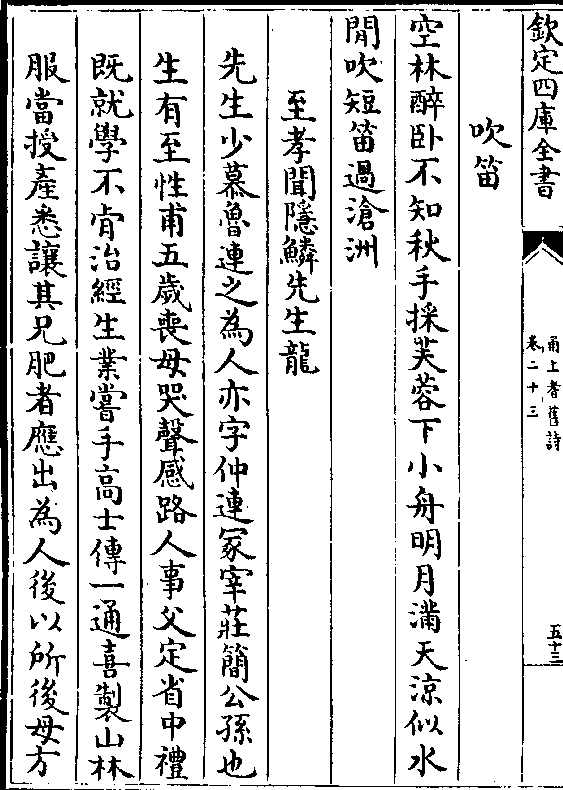 欽定四庫全書
甬上耆舊詩
卷二十三
五十三
吹笛
空林醉卧不知秋手採芙蓉下小舟明月滿天涼似水
閒吹短笛過滄洲
至孝聞隱鱗先生龍
先生少慕魯連之為人亦字仲連冢宰莊簡公孫也
生有至性甫五歲喪母哭聲感路人事父定省中禮
既就學不肯治經生業嘗手高士傳一通喜製山林
服當授產悉讓其兄肥者應出為人後以所後母方